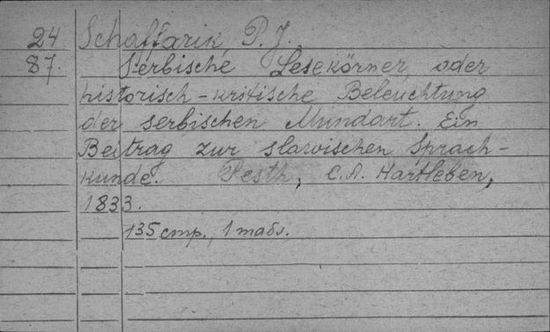 24 Schaffarik, P. J.
87. Serbische Lesekörner, oder
historisch-kritische Beleuchtung
der serbischen Mundart. Ein
Beitrag zur slawischen Sprach-
kunde. Pesth, C. A. Hartleben,
1833.
135 стр., 1 табл.